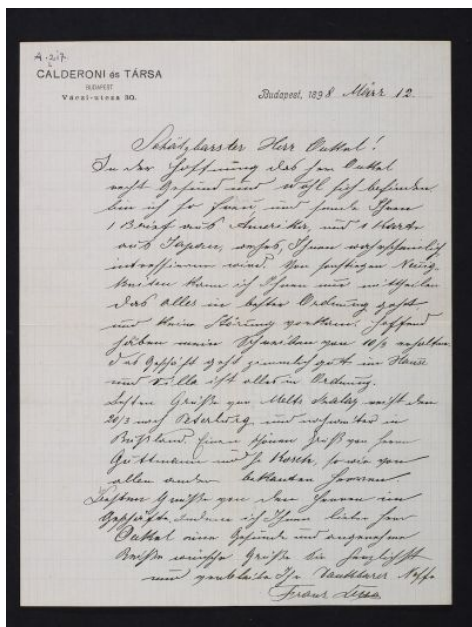 A. 2/17.
CALDERONI és TÁRSA
BUDAPEST
Váczi-utcza 30.
Budapest, 1898 März 12.
Schätzbarster Herr Onkel!
In der Hoffnung das Herr Onkel
recht Gesund und wohl sich befinden
bin ich so frei und sende Ihnen
1 Brief aus Amerika, und 1 Karte
aus Japan, Ihnen wahrscheinlich
interessieren wird. Von sonstigen Neuig-
keiten kann ich Ihnen nur mittheilen
das alles in bester Ordnung geht
und keine Störung vorkam. Hoffend
haben mein Schreiben von 10/3 erhalten.
Das Geschäft geht ziemlich gut im Hause
und Villa ist alles in Ordnung.
Besten Grüße von reist den
20/3 nach Petersburg und in
Rußland. Einen schönen Gruß von Herrn
Guttmann und so wie von
allen andern bekannten Herren.
Besten Grüße von den Herren im
Geschäfte, ich Ihnen lieber Herr
Onkel eine Gesunde und angenehme
Reise wünsche Grüße Sie herzlichst
und verbleibe Ihr Dankbarer Neffe
Franz